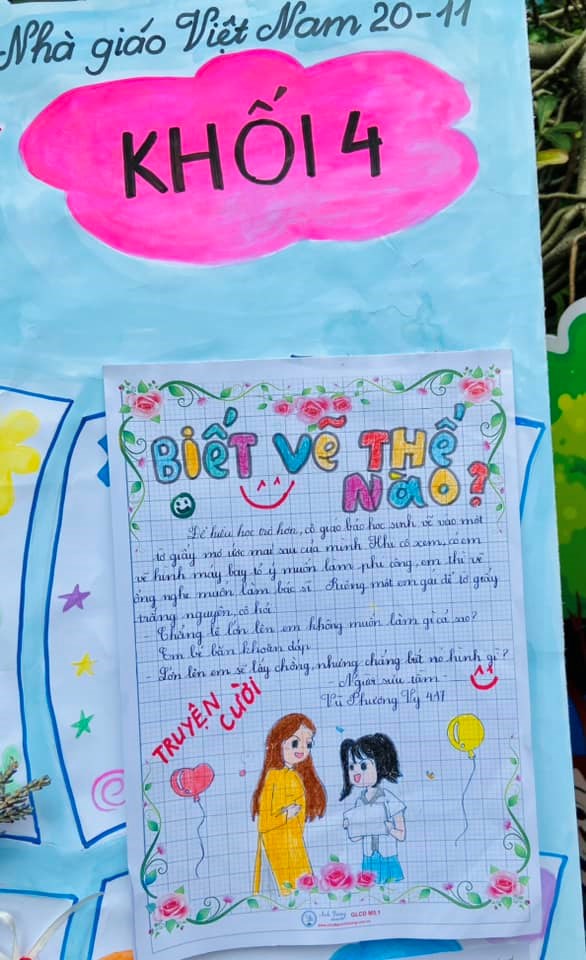 Nhà giáo Việt Nam 20-11
KHỐI 4
BIẾT VẼ THẾ
NÀO?
Để hiểu học trò hơn, cô giáo bảo học sinh vẽ vào một
tờ giấy mơ ước mai sau của mình. Khi cô xem, có em
vẽ hình máy bay tỏ ý muốn làm phi công, em thì vẽ
ống nghe muốn làm bác sĩ. Riêng một em gái để tờ giấy
trắng nguyên, cô hỏi
- Chẳng lẽ lớn lên em không muốn làm gì cả sao?
Em bé băn khoăn đáp
- Lớn lên em sẽ lấy chồng, nhưng chẳng biết nó hình gì?
- Người sưu tầm -
Vũ Phương Vy 4A7
TRUYỆN
CƯỜI
GLCD MS 1